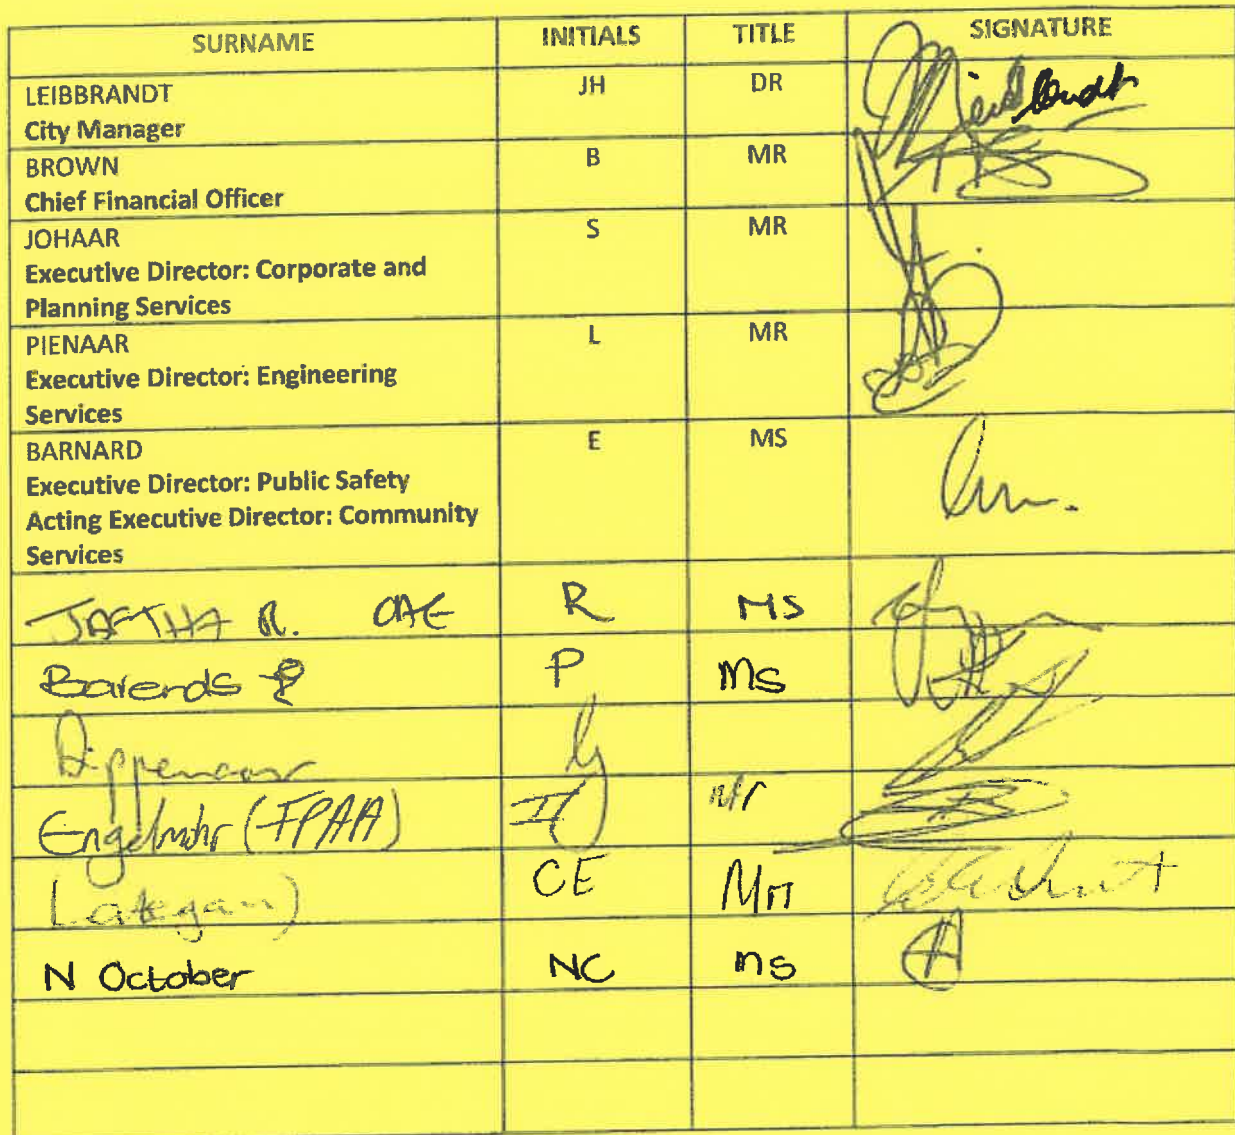 SURNAME INITIALS TITLE SIGNATURE
LEIBBRANDT JH DR
City Manager
BROWN B MR
Chief Financial Officer
JOHAAR S MR
Executive Director: Corporate and
Planning Services
PIENAAR L MR
Executive Director: Engineering
Services
BARNARD E MS
Executive Director: Public Safety
Acting Executive Director: Community
Services
JAFTHA R. CAE R MS
Barends P P Ms
Dippenaar
Engelmohr (FPAA) Mr
Lategan CE Mr
N October NC ms